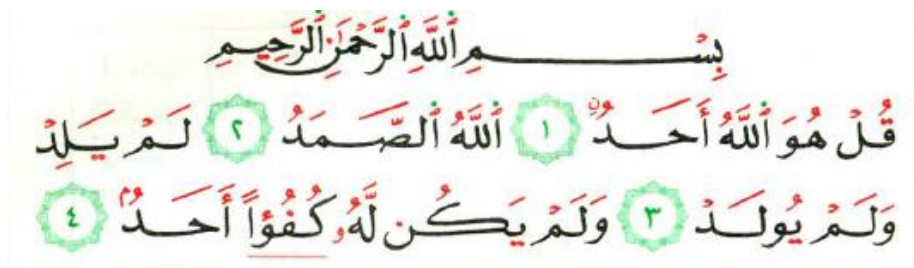 بِسْمِ ٱللَّهِ ٱلرَّحْمَٰنِ ٱلرَّحِيمِ
قُلْ هُوَ ٱللَّهُ أَحَدٌ ١ ٱللَّهُ ٱلصَّمَدُ ٢ لَمْ يَلِدْ
وَلَمْ يُولَدْ ٣ وَلَمْ يَكُن لَّهُۥ كُفُؤاً أَحَدٌ ٤